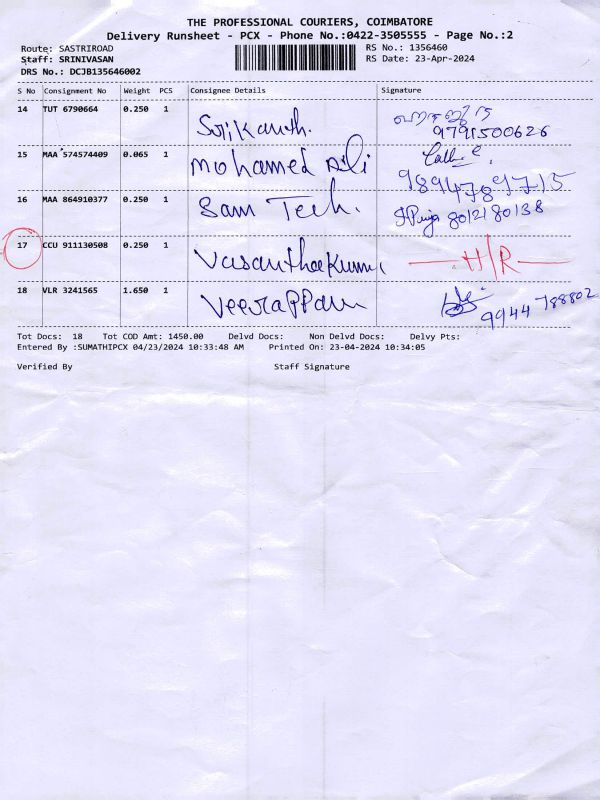 THE PROFESSIONAL COURIERS, COIMBATORE
Delivery Runsheet - PCX - Phone No.:0422-3505555 - Page No.:2
Route: SASTRIROAD RS No.: 1356460
Staff: SRINIVASAN RS Date: 23-Apr-2024
DRS No.: DCJB135646002
S No Consignment No Weight PCS Consignee Details Signature
14 TUT 6790664 0.250 1 Srikanth.
9791500626
15 MAA 574574409 0.065 1 Mohamed Ali
9894789715
16 MAA 864910377 0.250 1 Sam Tech. 8012180138
17 CCU 911130508 0.250 1 Vasanthakumar H/R
18 VLR 3241565 1.650 1 Veerappan 9944788802
Tot Docs: 18 Tot COD Amt: 1450.00 Delvd Docs: Non Delvd Docs: Delvy Pts:
Entered By :SUMATHIPCX 04/23/2024 10:33:48 AM Printed On: 23-04-2024 10:34:05
Verified By Staff Signature